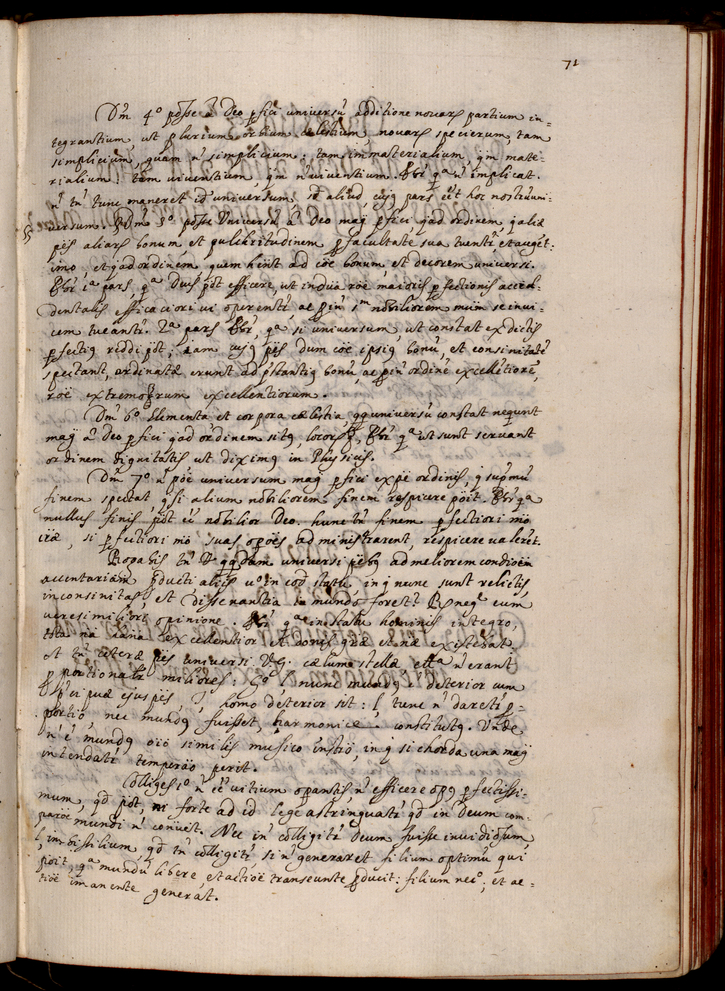 71
Dm̃ 4º pōsse à Deo pfici universũ additione novarʒ partium in-
tegrantium, ut plurium orbium cælestium, novarʒ specierum, tam
simplicium, quam ñ simplicium: tam immaterialium, q̃m mate-
rialium: tam viventium, q̃m ñ viventium. Pbr̃ qª ñ implicat.
ñ tñ tunc maneret id universum, sd aliud cujꝰ pars eēt hoc nostr̃ uni-
versum. Dm̃ 5º pōsse Universũ à Deo magꝭ pfici q̃ad ordinem, q̃ aliæ
ptes aliarʒ bonum et pulchritudinem p facultate sua tuentr̃ et augẽt:
imo, et q̃ad ordinem quem hēnt ad cōe bonum et decorem universi.
Pbr̃ 1ª pars, qª Deus pōt efficere, ut in dua rōe maioris pfectionis acci-
dentalis efficaciori vi operentr̃ ac
cem tueantr̃. 2ª pars Pbr̃, qª si universum, ut constat ex dictis
pfectiꝰ reddi pōt; iam cujꝰ ptes dum cōe ipsiꝰ bonũ, et consinitatẽ
spectant, ordinatæ erunt ad pstantiꝰ bonũ, ac pīn ordinẽ excellẽtiorẽ,
rōe extremorum excellentiorum.
Dm̃ 6º Elementa et corpora cælestia, qqꝰ universũ constat nequnt
magꝭ à Deo pfici q̃ad ordinem sitꝰ, locorʒ, Pbr̃ qª ut sunt servant
ordinem dignitatis ut diximꝰ in Physicis.
Dm̃ 7º ñ pōe universum magꝭ pfici ex pte ordinis, q̃ supmũ
finem spectat, q̃si alium nobiliorem finem respicere pōit. Pbr̃ qª
nullus finis pōt eẽ nobilior Deo. hunc tñ finem pfectiori mō
si pfectiori mō suas opōes administrarent, respicere valeret.
Rogabis tñ V. qqdam universi ptebꝰ ad meliorem conditiōem
accentariam pducti aliis vº in eod statu in q̃ nunc sunt relictis
inconsinitas, et dissonantia in mundo foret? R. neg. cum
verisimiliori opinione. Pbr̃ qª in statu hominis integro,
excellentior et donis græ et naͤ existerat
et tñ cæteræ ptes universi V.g. cælum stellæ etª ñ erant
pportionatr̃ meliores: Go l nunc mundꝰ deterior cum
pcipuæ ejus ptes homo deterior sit: l tunc ñ daretr̃ p-
portio, nec mundꝰ fuisset harmonice constitutꝰ. Unde
ñ ẽ mundꝰ oīo similis musico instrõ, in q̃ si chorda una magꝭ
intendatr̃ temperão perit.
Colliges 1º ñ eẽ vitium operantis ñ efficere opꝰ pfectissi-
mum, qd pōt, ni forte ad id lege astringuatr̃ qd in Deum com-
parõe mundi ñ convẽt. Nec in colligitr̃ Deum fuisse invidiosum
l imbissilium qd tñ colligitr̃ si ñ generaret filium optimũ qui
pōit qª mundũ libere et actiōe transeunte pducit: filium necº, et ac-
tiōe imanente generat.